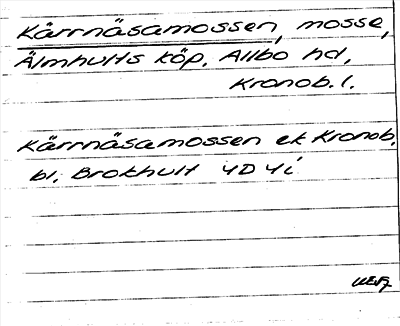 Kärrnäsamossen, mosse,
Älmhults köp, Allbo hd,
Kronob. l.
Kärrnäsamossen ek Kronob.
bl. Brokhult 4D 4i